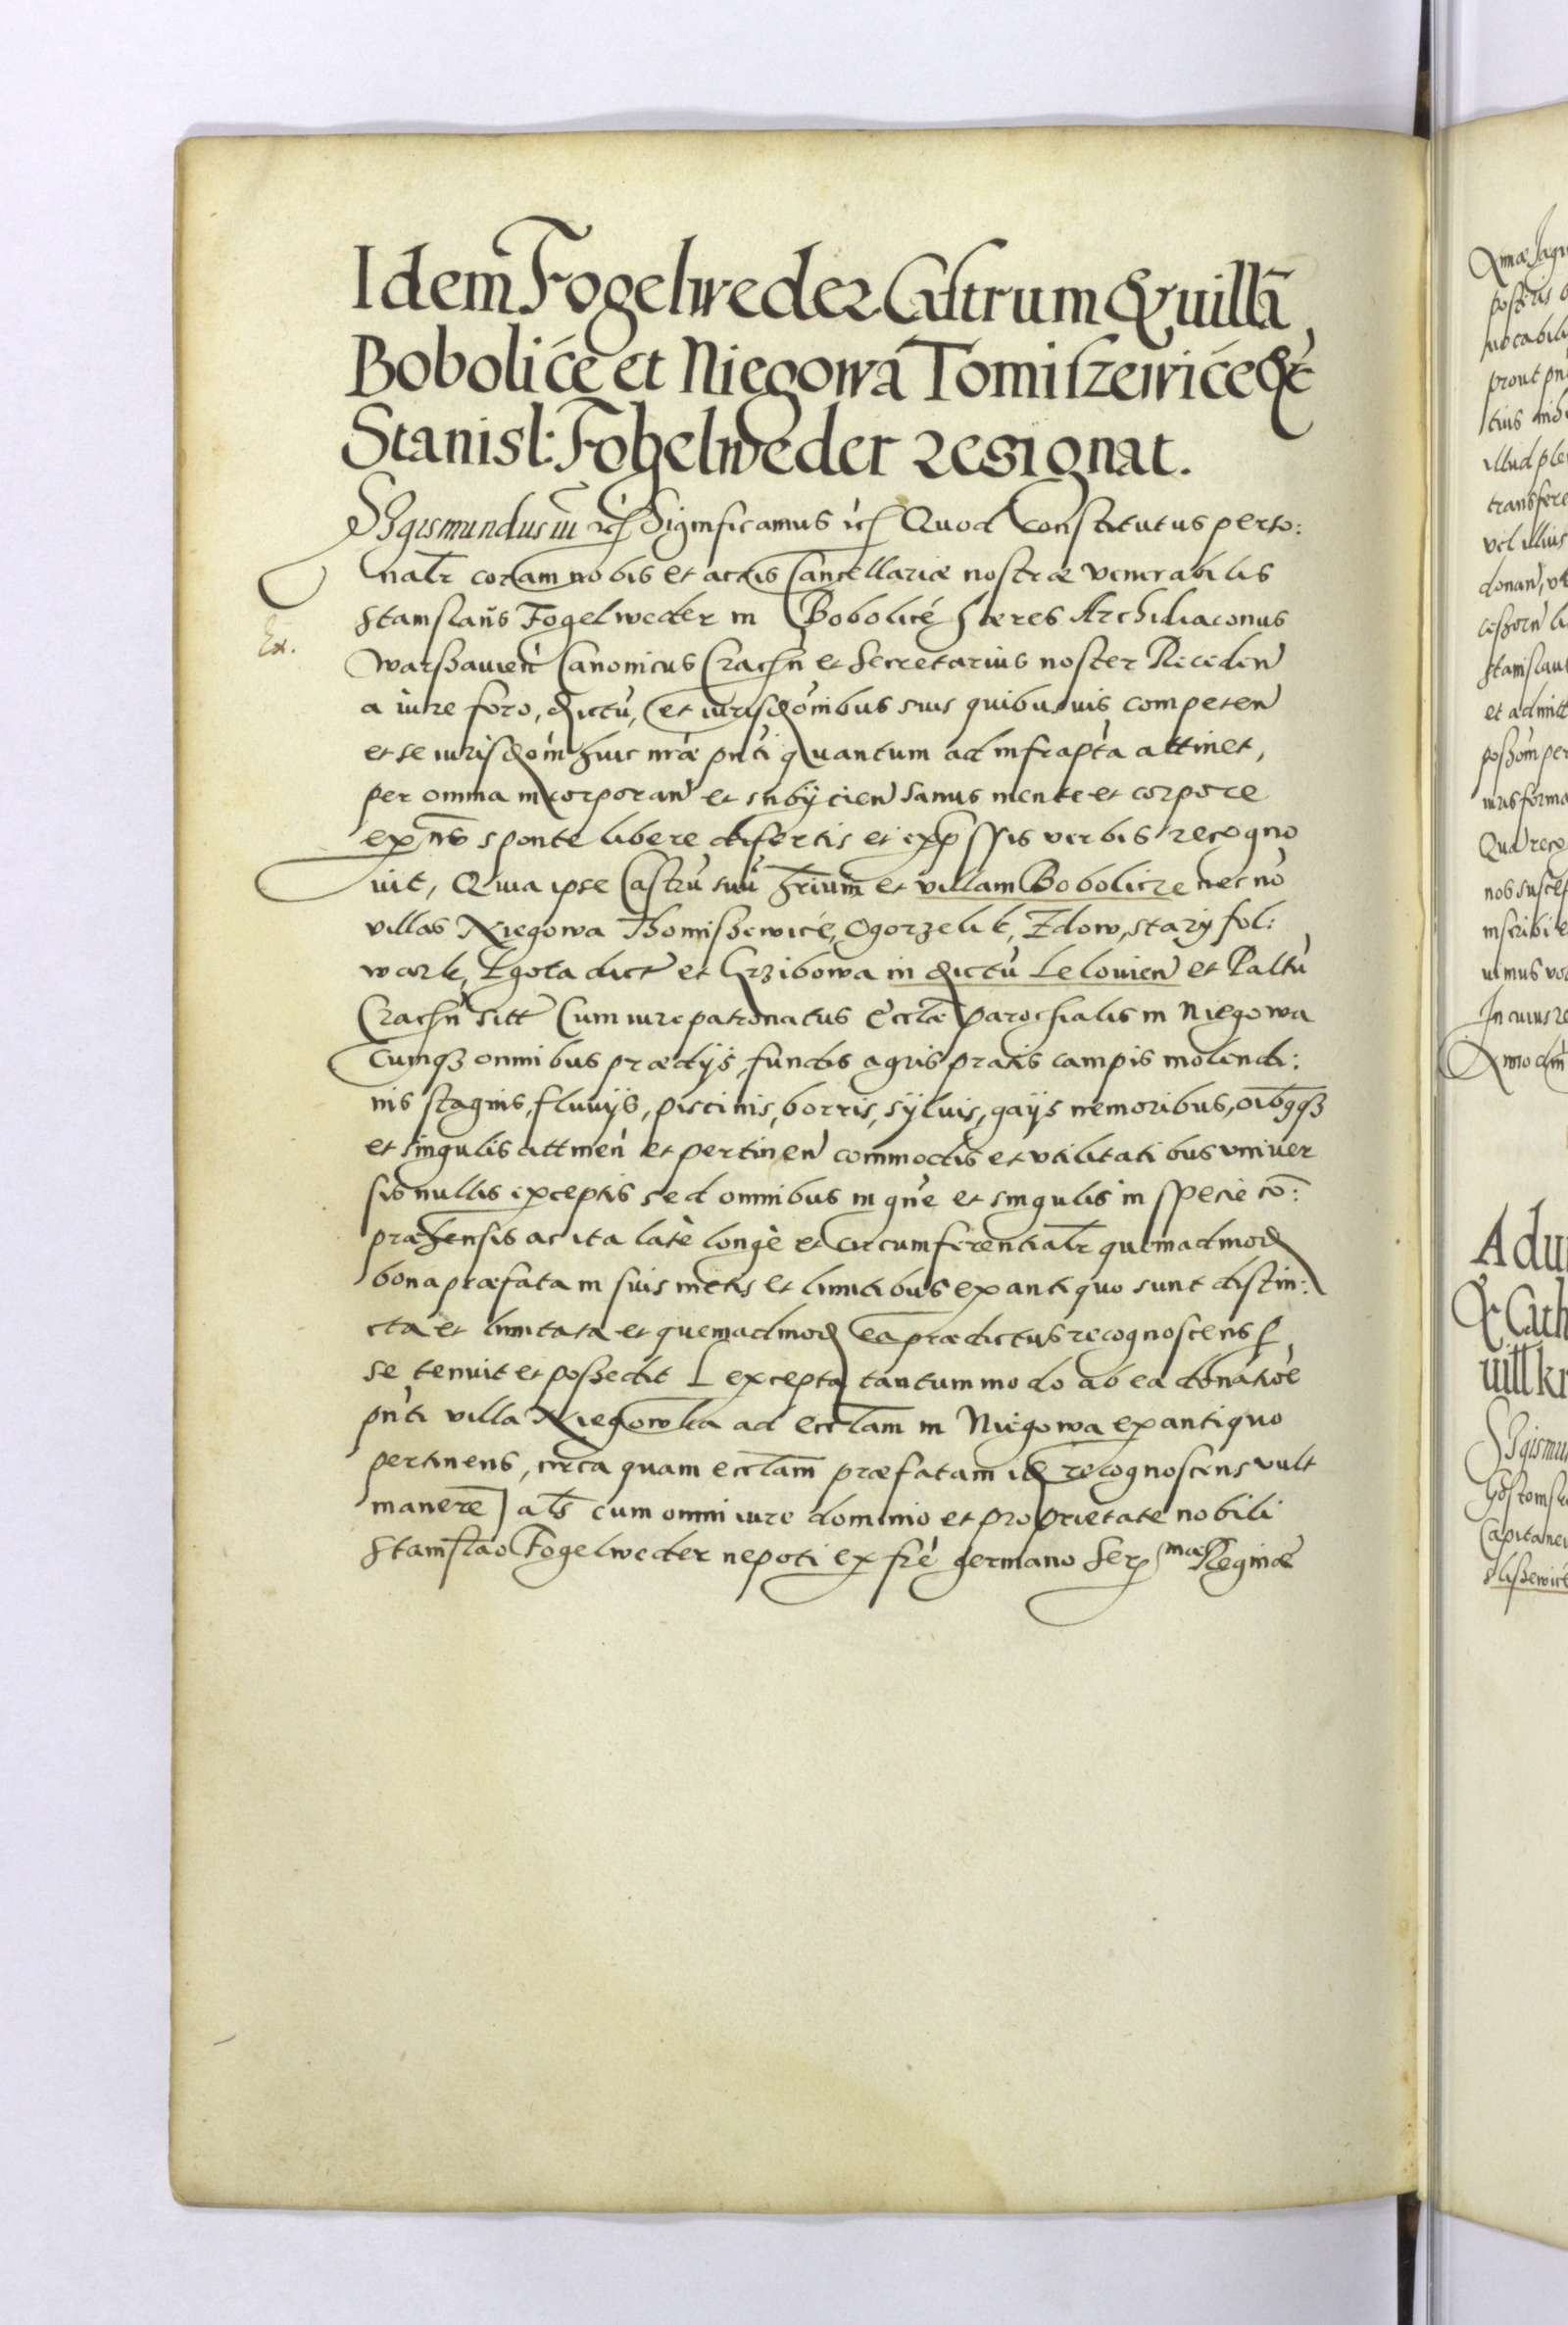 Idem Fogelweder Castrum & villā
Bobolicé et Niegowa Tomiszewicé &c̀
Stanisl: Fogelweder resignat.
Sigismundus iii etc̃ Significamus etc̃ Quod Constitutus perso:
nalr̃ coram nobis et actis Cancellariæ nostræ venerabilis
Ex.
Stanislaūs Fogelweder in Bobolicé Hæres Archidiaconus
warshauien̄ Canonicus Crachn̄ et Secretarius noster Receden̄
a iure foro, dictu, et iurisdōnibus suis quibusuis competen̄
et se iurisdōni huic nr̄æ pn̄ti quantum ad infrapta attinet,
per omnia incorporan̄ et subijcien̄ sanus mente et corpore
exn̄s sponte libere disertis et exp̄ssis verbis recogno
uit, Quia ipse Castrū suū hr̄ium et villam Bobolicze nec nō
villas Niegowa Thomishewicé, Ogorzelik, Zdow, stary fol:
wark, Lgota dict̄ et Grzibowa in dictū Lelouien̄ et Paltū
Crachn̄ sitt̄ Cum iure patronatus Eccl̄æ parochialis in Niegowa
Cumq3 omnibus prædijs, fundis agris pratis campis molendi:
nis stagnis, fluuijs, piscinis, borris, syluis, gaijs nemoribus, oībq3
et singulis attinen̄ et pertinen̄ commodis et vtilitatibus vniuer
sis nullis exceptis sed omnibus in gn̄e et singulis in specie cō:
præhensis ac ita latè longè et circumferentialr̃ quemadmod
bona præfata in suis metis et limitibus ex antiquo sunt distin:
cta et limitata et quemadmod ea prædictus recognoscens p̱
se tenuit et possedit [excepta tantummodo ab ea donatiōe
pn̄ti villa Niegowka ad eccl̄am in Niegowa ex antiquo
pertinens, circa quam eccl̄am præfatam id recognoscens vult
manere] al̄s cum omni iure dominio et proprietate nobili
Stanislao Fogelweder nepoti ex fr̄e germano Ser mæ Reginæ